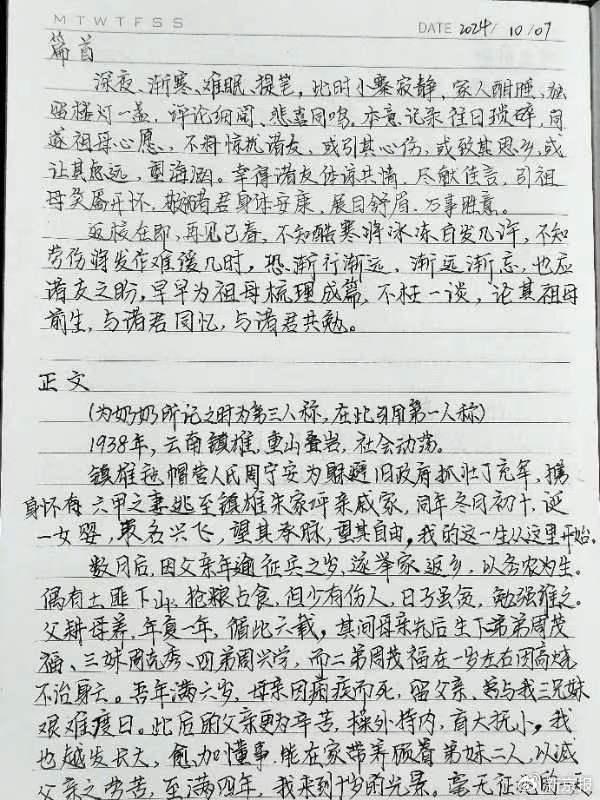 MTWTFSS
DATE 2024/10/07
篇首
深夜、渐寒、难眠、提笔，此时小寨寂静，家人酣睡、独
留檯灯一盏，评论细阅、悲喜同鸣。本意记录往日琐碎，
遂祖母心愿，不料惊扰诸友，或引其心伤，或致其思乡，或
让其忘远，望海涵。幸得诸友体谅共情，尽献佳言，引祖
母笑属开怀，敬诸君身体安康，展目舒眉，万事胜意。
返校在即，再见已春，不知酷寒将冰冻白发几许，不知
劳伤将发作难缓几时，恐渐行渐远、渐远渐忘，也应
诸友之盼，早早为祖母梳理成篇，不枉一谈，论其祖母
前生，与诸君同忆，与诸君共勉。
正文
(为奶奶所记之时为第三人称，在此引用第一人称)
1938年，云南镇雄，重山叠岩，社会动荡。
镇雄毡帽营人民周宁安为躲避旧政府抓壮丁充军，携
身怀有六甲之妻逃至镇雄朱家坪亲戚家，同年冬月初十，诞
一女婴，取名兴飞，望其奋脉，望其自由，我的这一生从这里开始。
数月后，因父亲年逾征兵之岁，遂举家返乡，以务农为生。
偶有土匪下山，抢粮占食，但少有伤人，日子虽贫，勉强维之。
父耕母养，年复一年，循此六载，其间母亲先后生下二弟周茂
福、三妹周克秀、四弟周兴学，而二弟周茂福在一岁左右因高烧
不治身亡。吾年满六岁，母亲因病疾而死，留父亲、与我三兄妹
艰难度日。此后的父亲更为辛苦，操外持内，育大抚小，我
也越发长大，愈加懂事，能在家带养照看弟妹二人，以减
父亲之劳苦，至满四年，我来到十岁的光景。毫无征